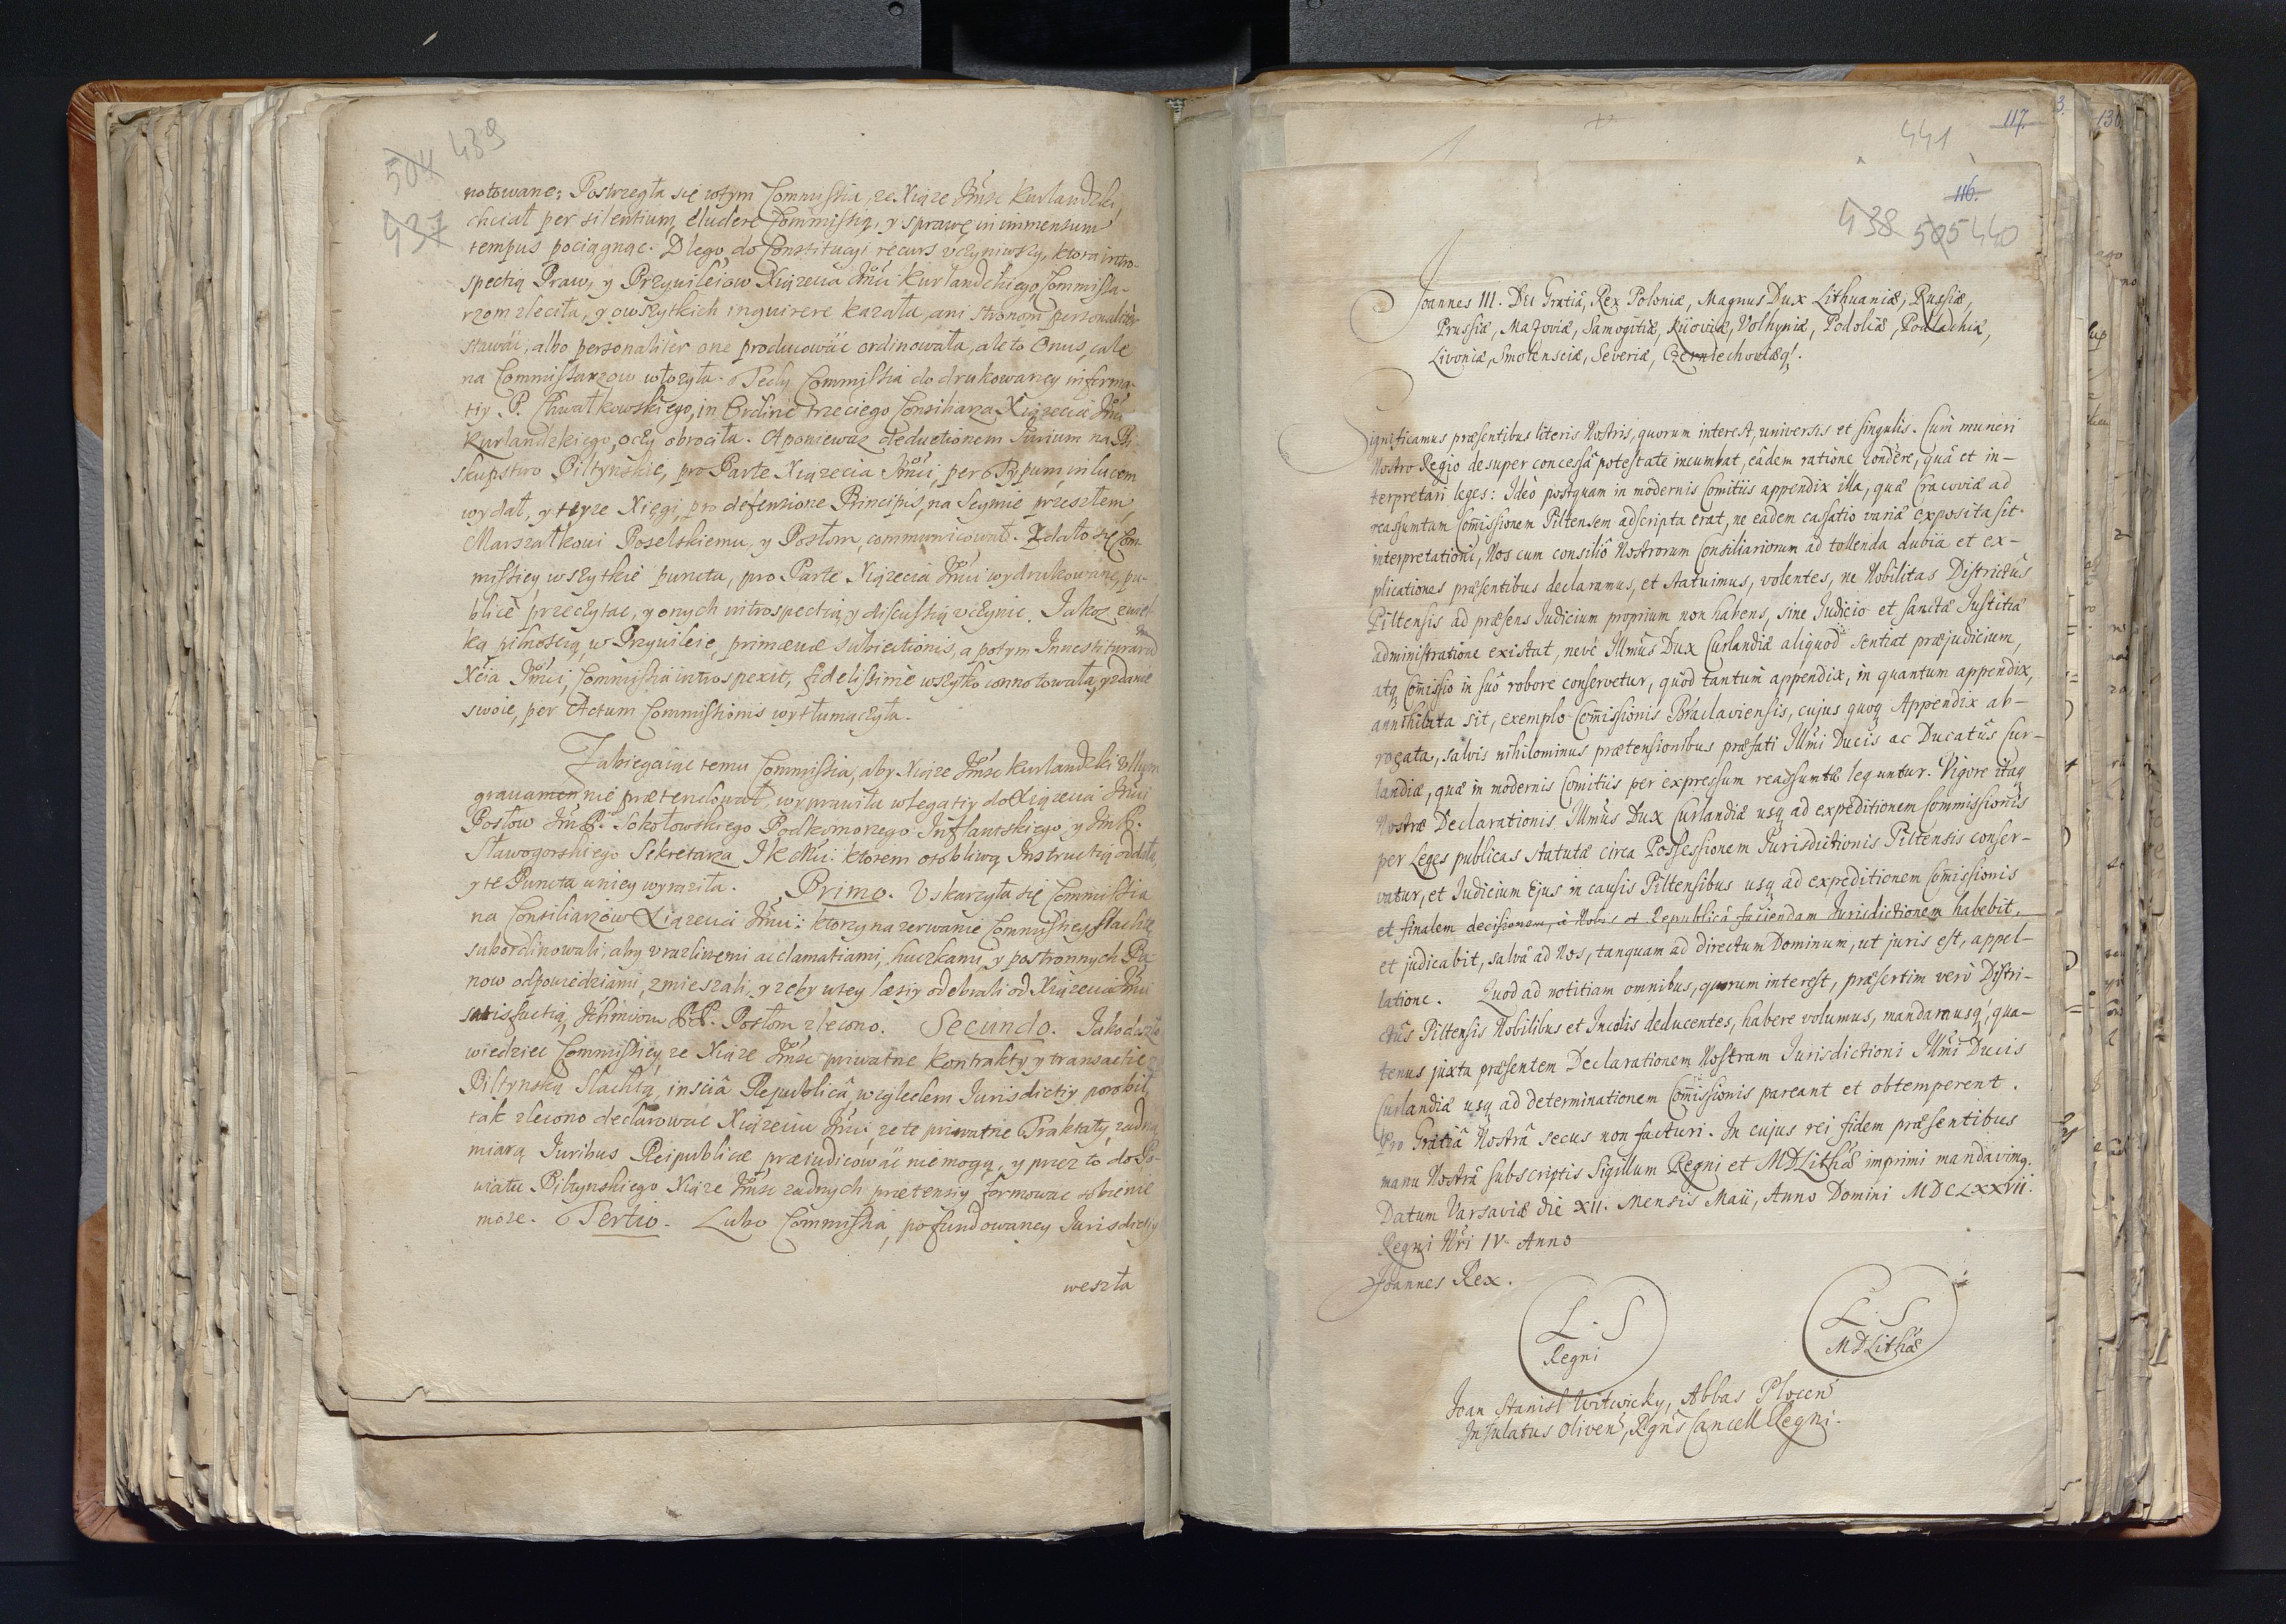 504 439
437
notowane; Postrzegła się wtym Commissia, ze Xiąze Jmść Kurlandzki,
chciał per silentium, eludere Commissią, y sprawę in immensum
tempus pociągnąc. Dlego, do Constitucyi recurs vczyniwszy, ktora intro-
spectią Praw, y Przywileiow Xiązecia Jmci Kurlandskiego, Commissa-
rzom zleciła, y owszytkich inquirere kazała, ani stronom personaliter
stawać, albo personaliter one producować ordinowała, ale to Onus, cale
na Commissarzow włozyła. Tedy Commissia do drukowaney informa-
tiy P. Chwałkowskiego, in Ordine trzeciego Consiliarza Xiązecia Jmci
Kurlandzkiego, oczy obrociła. A poniewaz deductionem Iurium na Bi-
skupstwo Piltynskie, pro Parte Xiązecia Jmci, per Typum, in lucem
wydał, y teyze Xięgi, pro defensione Principis, na Seymie przeszłem,
Marszałkowi Poselskiemu, y Posłom, communicował. Zdało się Com-
missiey wszytkie puncta, pro Parte Xiązecia Jmci wydrukowane, pu-
blicè przeczytac, y onych introspectią, y discussią vczynic. Jakoz zwiel-
ką pilnoscią, w Przywileie, primævæ subiectionis, a potym Inuestiturarum
Xcia Jmci, Commissia introspexit, fidelissimè wszytko connotowała, y zdanie
swoie, per Actum Commissionis wytłumaczyła.
Zabiegaiąc temu Commissia, aby Xiąze Jmść Kurlandzki vllum
grauamen nie prætendował, wyprawiła w legatiy do Xiązecia Jmci
Posłow Jm P. Sokołowskiego Podkomorzego Inflantskiego, y Jm P.
Sławogorskiego Sekretarza J K Mci: ktorem osobliwą Instructią oddała,
y te Puncta w niey wyraziła. Primo. Vskarzyła się Commissia
na Consiliarzow Xiązecia Jmci: ktorzy na zerwanie Commissiey Slachtę
subordinowali, aby vrazliwemi acclamatiami, huczkami, y postronnych Pa-
now odpowiedziami, zmieszali, y zeby wtey læsiy odebrali od Xiązecia Jmci
satisfactią, Ichmciom PP. Posłom zlecono. Secundo. Jako doszło
wiedziec Commissiey, ze Xiąze Jmść priwatne Kontrakty y transactie z
Piltynską Slachtą, insciâ Republicâ, względem Iurisdictiy porobił,
tak zlecono declarowac Xiązeciu Jmci, ze te priwatne Traktaty, zadną
miarą Iuribus Reipublicæ præiudicowáć niemogą, y przez to do Po-
wiatu Piltynskiego Xiąze Jmść zadnych prætensiy formowac sobie nie
moze. Tertio. Lubo Commissia, po fundowaney Iurisdictiy
weszła
441 117.
116.
438 505 440
Joannes III. Dei Gratiâ, Rex Poloniæ, Magnus Dux Lithuaniæ, Russiæ,
Prussiæ, Mazoviæ, Samogitiæ, Kijoviæ, Volhyniæ, Podoliæ, Podlachiæ,
Livoniæ, Smolensciæ, Severiæ, Czerniechoviæq;.
Significamus præsentibus literis Nostris, quorum interest, universis et singulis. Cùm muneri
Nostro Regio desuper concessâ potestate incumbat, eâdem ratione condere, quâ et in-
terpretari leges: Ideò postquam in modernis Comitiis appendix illa, quæ Cracoviæ ad
reassumtam Com̃issionem Piltensem adscripta erat, ne eadem cassatio variæ exposita sit
interpretationi, Nos cum consiliô Nostrorum Consiliariorum ad tollenda dubia et ex-
plicationes præsentibus declaramus, et statuimus, volentes, ne Nobilitas Districtûs
Piltensis ad præsens Judicium proprium non habens, sine Judicio et sanctæ Justitiæ
administratione existat, nevé Illmus Dux Curlandiæ aliquod sentiat præjudicium,
atq Com̃issio in suô robore conservetur, quòd tantùm appendix, in quantum appendix,
annihilata sit, exemplo Com̃issionis Braclaviensis, cujus quoq Appendix ab-
rogata, salvis nihilominus prætensionibus præfati Illmi Ducis ac Ducatûs Cur-
landiæ, quæ in modernis Comitiis per expressum reassumtæ leguntur. Vigore itaq
Nostræ Declarationis, Illmus Dux Curlandiæ usq ad expeditionem Commissionis
per Leges publicas statutæ circa Possessionem Jurisdictionis Piltensis conser-
vatur, et Judicium Ejus in causis Piltensibus usq ad expeditionem Com̃issionis
et finalem decisionem, à Nobis et Republicâ faciendam Jurisdictionem habebit,
et judicabit, salvâ ad Nos, tanquam ad directum Dominum, ut juris est, appel-
latione. Quod ad notitiam omnibus, quorum interest, præsertim verò Distri-
ctûs Piltensis Nobilibus et Incolis deducentes, habere volumus, mandamusq, qua-
tenus juxta præsentem Declarationem Nostram Jurisdictioni Illmi Ducis
Curlandiæ usq ad determinationem Com̃issionis pareant et obtemperent.
Pro Gratiâ Nostrâ secus non facturi. In cujus rei fidem præsentibus
manu Nostrâ subscriptis Sigillum Regni et MDLithæ imprimi mandavimq.
Datum Varsaviæ die XII. Mensis Maii, Anno Domini MDCLXXVII.
Regni Nri IV. Anno
Joannes Rex.
L. S
Regni
L. S
MDLithæ
Joan Stanisl Witwicky, Abbas Plocen
Insulatus Oliven, Rgns Cancell Regni.